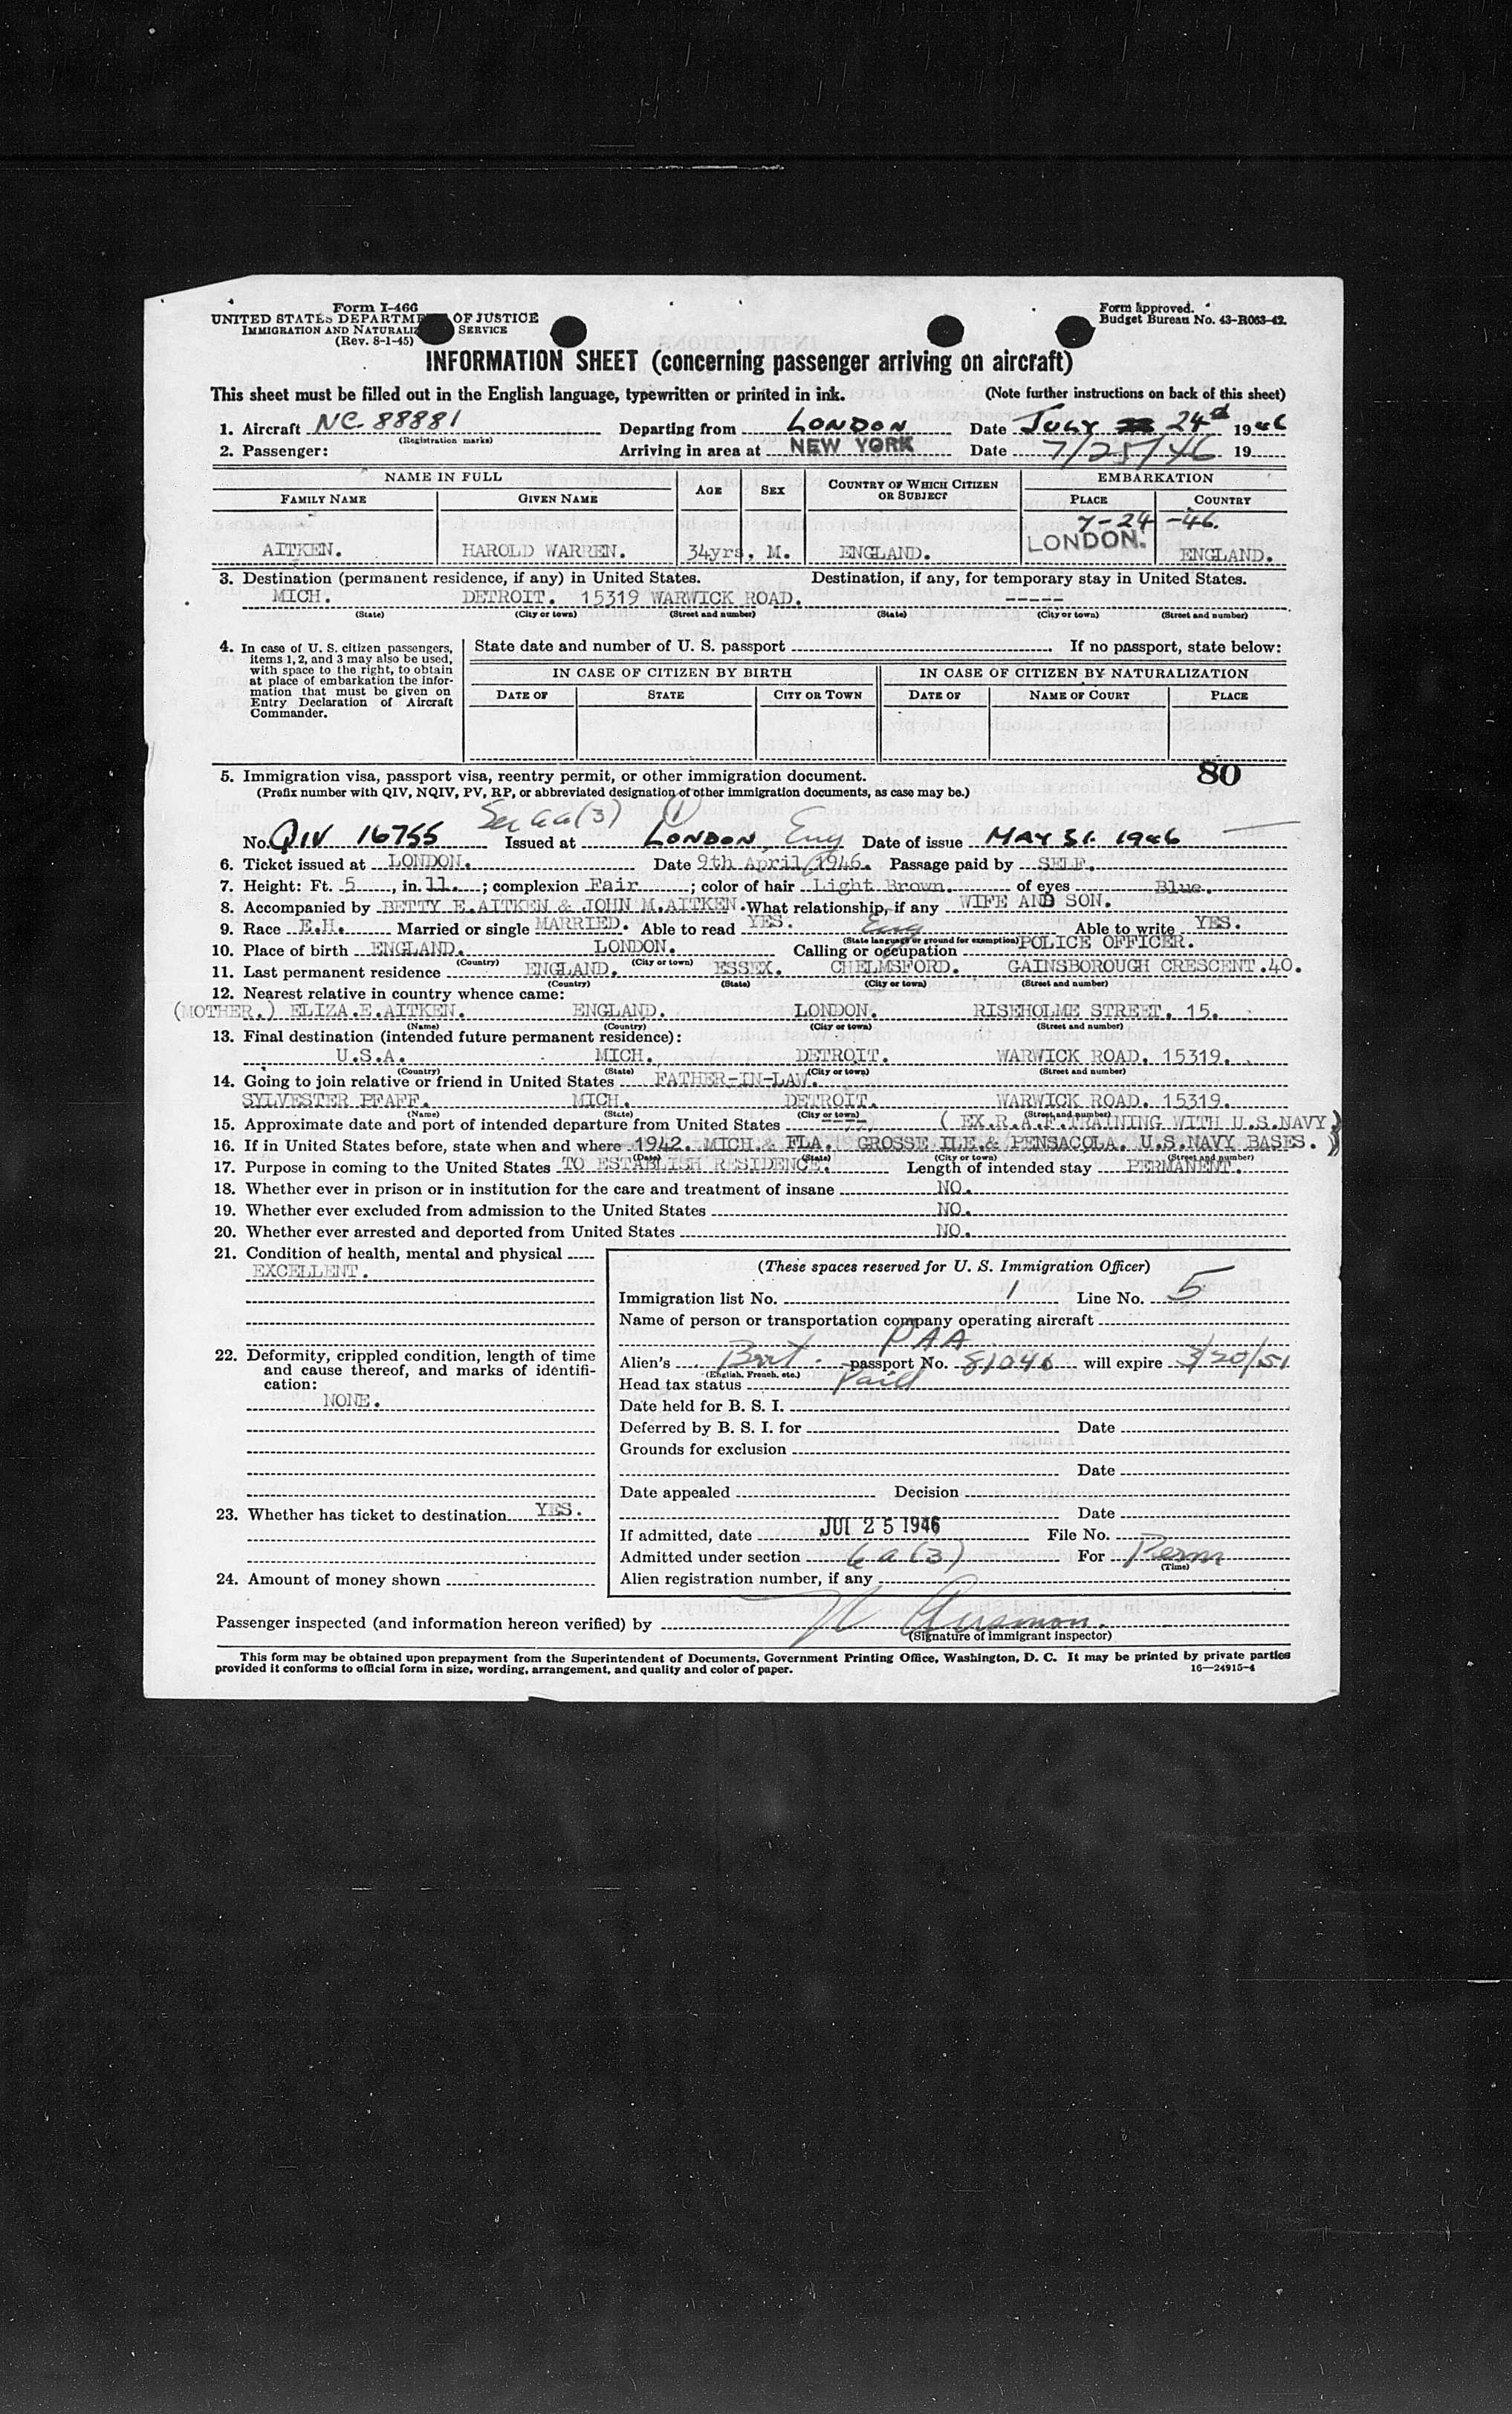 Form I-466
UNITED STATES DEPARTM OF JUSTICE
IMMIGRATION AND NATURALIZ SERVICE
(Rev. 8-1-45)
Form approved.
Budget Bureau No. 43-R063-42.
INFORMATION SHEET (concerning passenger arriving on aircraft)
This sheet must be filled out in the English language, typewritten or printed in ink. (Note further instructions on back of this sheet)
1. Aircraft NC-88881 Departing from LONDON Date JULY 24d 1946
(Registration marks)
2. Passenger: Arriving in area at NEW YORK Date 7/25/46 19
NAME IN FULL AGE SEX COUNTRY OF WHICH CITIZEN OR SUBJECT EMBARKATION
FAMILY NAME GIVEN NAME PLACE COUNTRY
7-24-46.
AITKEN. HAROLD WARREN. 34yrs. M. ENGLAND. LONDON. ENGLAND.
3. Destination (permanent residence, if any) in United States. Destination, if any, for temporary stay in United States.
MICH. DETROIT. 15319 WARWICK ROAD. -----
(State) (City or town) (Street and number) (State) (City or town) (Street and number)
4. In case of U. S. citizen passengers, items 1, 2, and 3 may also be used, with space to the right, to obtain at place of embarkation the information that must be given on Entry Declaration of Aircraft Commander.
State date and number of U. S. passport If no passport, state below:
IN CASE OF CITIZEN BY BIRTH IN CASE OF CITIZEN BY NATURALIZATION
DATE OF STATE CITY OR TOWN DATE OF NAME OF COURT PLACE
5. Immigration visa, passport visa, reentry permit, or other immigration document. 80
(Prefix number with QIV, NQIV, PV, RP, or abbreviated designation of other immigration documents, as case may be.)
Sec 6a(3) (1)
No. QIV 16755 Issued at LONDON, Eng Date of issue MAY 31. 1946
6. Ticket issued at LONDON. Date 9th April/1946. Passage paid by SELF.
7. Height: Ft. 5, in. 11.; complexion Fair; color of hair Light Brown. of eyes Blue.
8. Accompanied by BETTY E.AITKEN & JOHN M.AITKEN. What relationship, if any WIFE AND SON.
9. Race E.H. Married or single MARRIED. Able to read YES. Eng Able to write YES.
(State language or ground for exemption)
10. Place of birth ENGLAND. LONDON. Calling or occupation POLICE OFFICER.
(Country) (City or town)
11. Last permanent residence ENGLAND. ESSEX. CHELMSFORD. GAINSBOROUGH CRESCENT.40.
(Country) (State) (City or town) (Street and number)
12. Nearest relative in country whence came:
(MOTHER.) ELIZA.E.AITKEN. ENGLAND. LONDON. RISEHOLME STREET. 15.
(Name) (Country) (City or town) (Street and number)
13. Final destination (intended future permanent residence):
U.S.A. MICH. DETROIT. WARWICK ROAD. 15319.
(Country) (State) (City or town) (Street and number)
14. Going to join relative or friend in United States FATHER-IN-LAW.
SYLVESTER PFAFF. MICH. DETROIT. WARWICK ROAD. 15319.
(Name) (State) (City or town) (Street and number)
15. Approximate date and port of intended departure from United States ---- (EX.R.A.F.TRAINING WITH U.S.NAVY)
16. If in United States before, state when and where 1942. MICH.& FLA. GROSSE ILE.& PENSACOLA. U.S.NAVY BASES. )
(Date) (State) (City or town) (Street and number)
17. Purpose in coming to the United States TO ESTABLISH RESIDENCE. Length of intended stay PERMANENT.
18. Whether ever in prison or in institution for the care and treatment of insane NO.
19. Whether ever excluded from admission to the United States NO.
20. Whether ever arrested and deported from United States NO.
21. Condition of health, mental and physical
EXCELLENT.
22. Deformity, crippled condition, length of time and cause thereof, and marks of identification:
NONE.
23. Whether has ticket to destination YES.
24. Amount of money shown
(These spaces reserved for U. S. Immigration Officer)
Immigration list No. 1 Line No. 5
Name of person or transportation company operating aircraft
PAA
Alien's Brit. passport No. 81046 will expire 3/20/51
(English, French, etc.)
Head tax status Paid
Date held for B. S. I.
Deferred by B. S. I. for Date
Grounds for exclusion
Date
Date appealed Decision
Date
If admitted, date JUL 25 1946 File No.
Admitted under section 6a(3) For Perm
(Time)
Alien registration number, if any
Passenger inspected (and information hereon verified) by
(Signature of immigrant inspector)
This form may be obtained upon prepayment from the Superintendent of Documents, Government Printing Office, Washington, D. C. It may be printed by private parties
provided it conforms to official form in size, wording, arrangement, and quality and color of paper. 16—24915-4